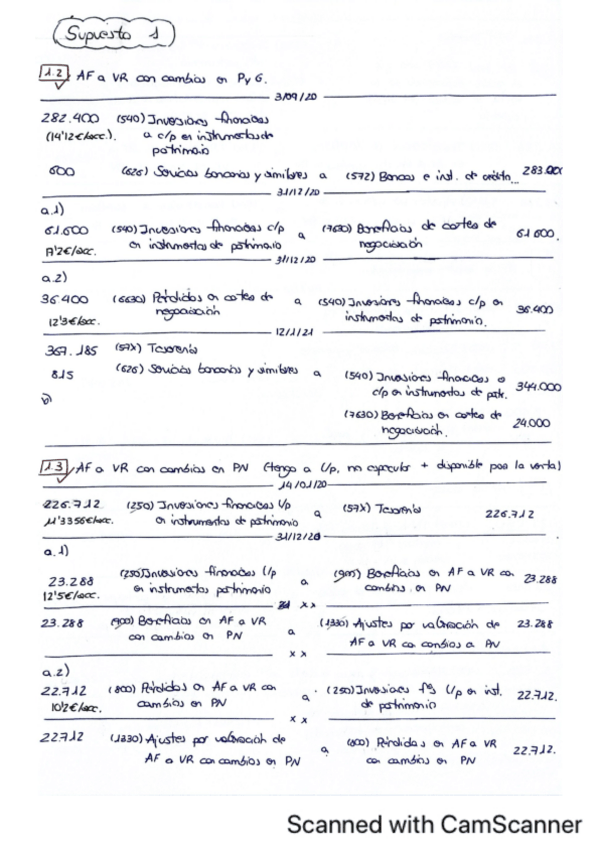 Supuesto 1
1.2 AF a VR con cambios en PyG.
3/09/20
282.400 (540) Inversiones financieras
(14'12€/acc.) a c/p en instrumentos de
patrimonio
600 (626) Servicios bancarios y similares a (572) Bancos e inst. de crédito...
31/12/20
a.1)
61.600 (540) Inversiones financieras c/p a (7630) Beneficios de cartera de 61.600.
17'2€/acc. en instrumentos de patrimonio negociación
31/12/20
a.2)
36.400 (6630) Pérdidas en cartera de a (540) Inversiones financieras c/p en 36.400
12'3€/acc. negociación instrumentos de patrimonio.
12/1/21
367.185 (57X) Tesorería
815 (626) Servicios bancarios y similares a (540) Inversiones financieras a 344.000
b) c/p en instrumentos de patr.
(7630) Beneficios en cartera de 24.000
negociación.
1.3 AF a VR con cambios en PN (tengo a l/p, no especular + disponible para la venta)
14/01/20
226.712 (250) Inversiones financieras l/p a (57X) Tesorería 226.712
11'3356€/acc. en instrumentos de patrimonio
31/12/20
a.1)
23.288 (250) Inversiones financieras l/p a (900) Beneficios en AF a VR con 23.288
12'5€/acc. en instrumentos patrimonio cambios en PN
x x
23.288 (900) Beneficios en AF a VR a (1330) Ajustes por valoración de 23.288
con cambios en PN AF a VR con cambios a PN
x x
a.2)
22.712 (800) Pérdidas en AF a VR con a (250) Inversiones fª l/p en inst. 22.712.
10'2€/acc. cambios en PN de patrimonio
x x
22.712 (1330) Ajustes por valoración de a (800) Pérdidas en AF a VR 22.712.
AF a VR con cambios en PN con cambios en PN
Scanned with CamScanner